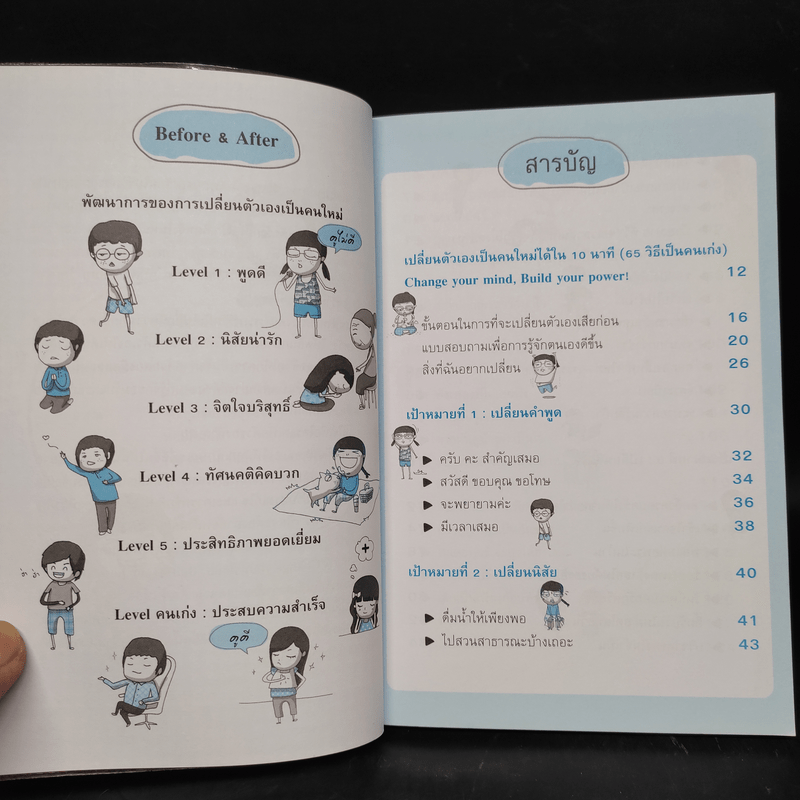 Before & After
พัฒนาการของการเปลี่ยนตัวเองเป็นคนใหม่
ดูไม่ดี
Level 1 : พูดดี
Level 2 : นิสัยน่ารัก
Level 3 : จิตใจบริสุทธิ์
Level 4 : ทัศนคติคิดบวก
Level 5 : ประสิทธิภาพยอดเยี่ยม
ฮ่า ฮ่า
Level คนเก่ง : ประสบความสำเร็จ
ดูดี
สารบัญ
เปลี่ยนตัวเองเป็นคนใหม่ได้ใน 10 นาที (65 วิธีเป็นคนเก่ง)
Change your mind, Build your power! 12
ขั้นตอนในการที่จะเปลี่ยนตัวเองเสียก่อน 16
แบบสอบถามเพื่อการรู้จักตนเองดีขึ้น 20
สิ่งที่ฉันอยากเปลี่ยน 26
เป้าหมายที่ 1 : เปลี่ยนคำพูด 30
▶ ครับ คะ สำคัญเสมอ 32
▶ สวัสดี ขอบคุณ ขอโทษ 34
▶ จะพยายามค่ะ 36
▶ มีเวลาเสมอ 38
เป้าหมายที่ 2 : เปลี่ยนนิสัย 40
▶ ดื่มน้ำให้เพียงพอ 41
▶ ไปสวนสาธารณะบ้างเถอะ 43